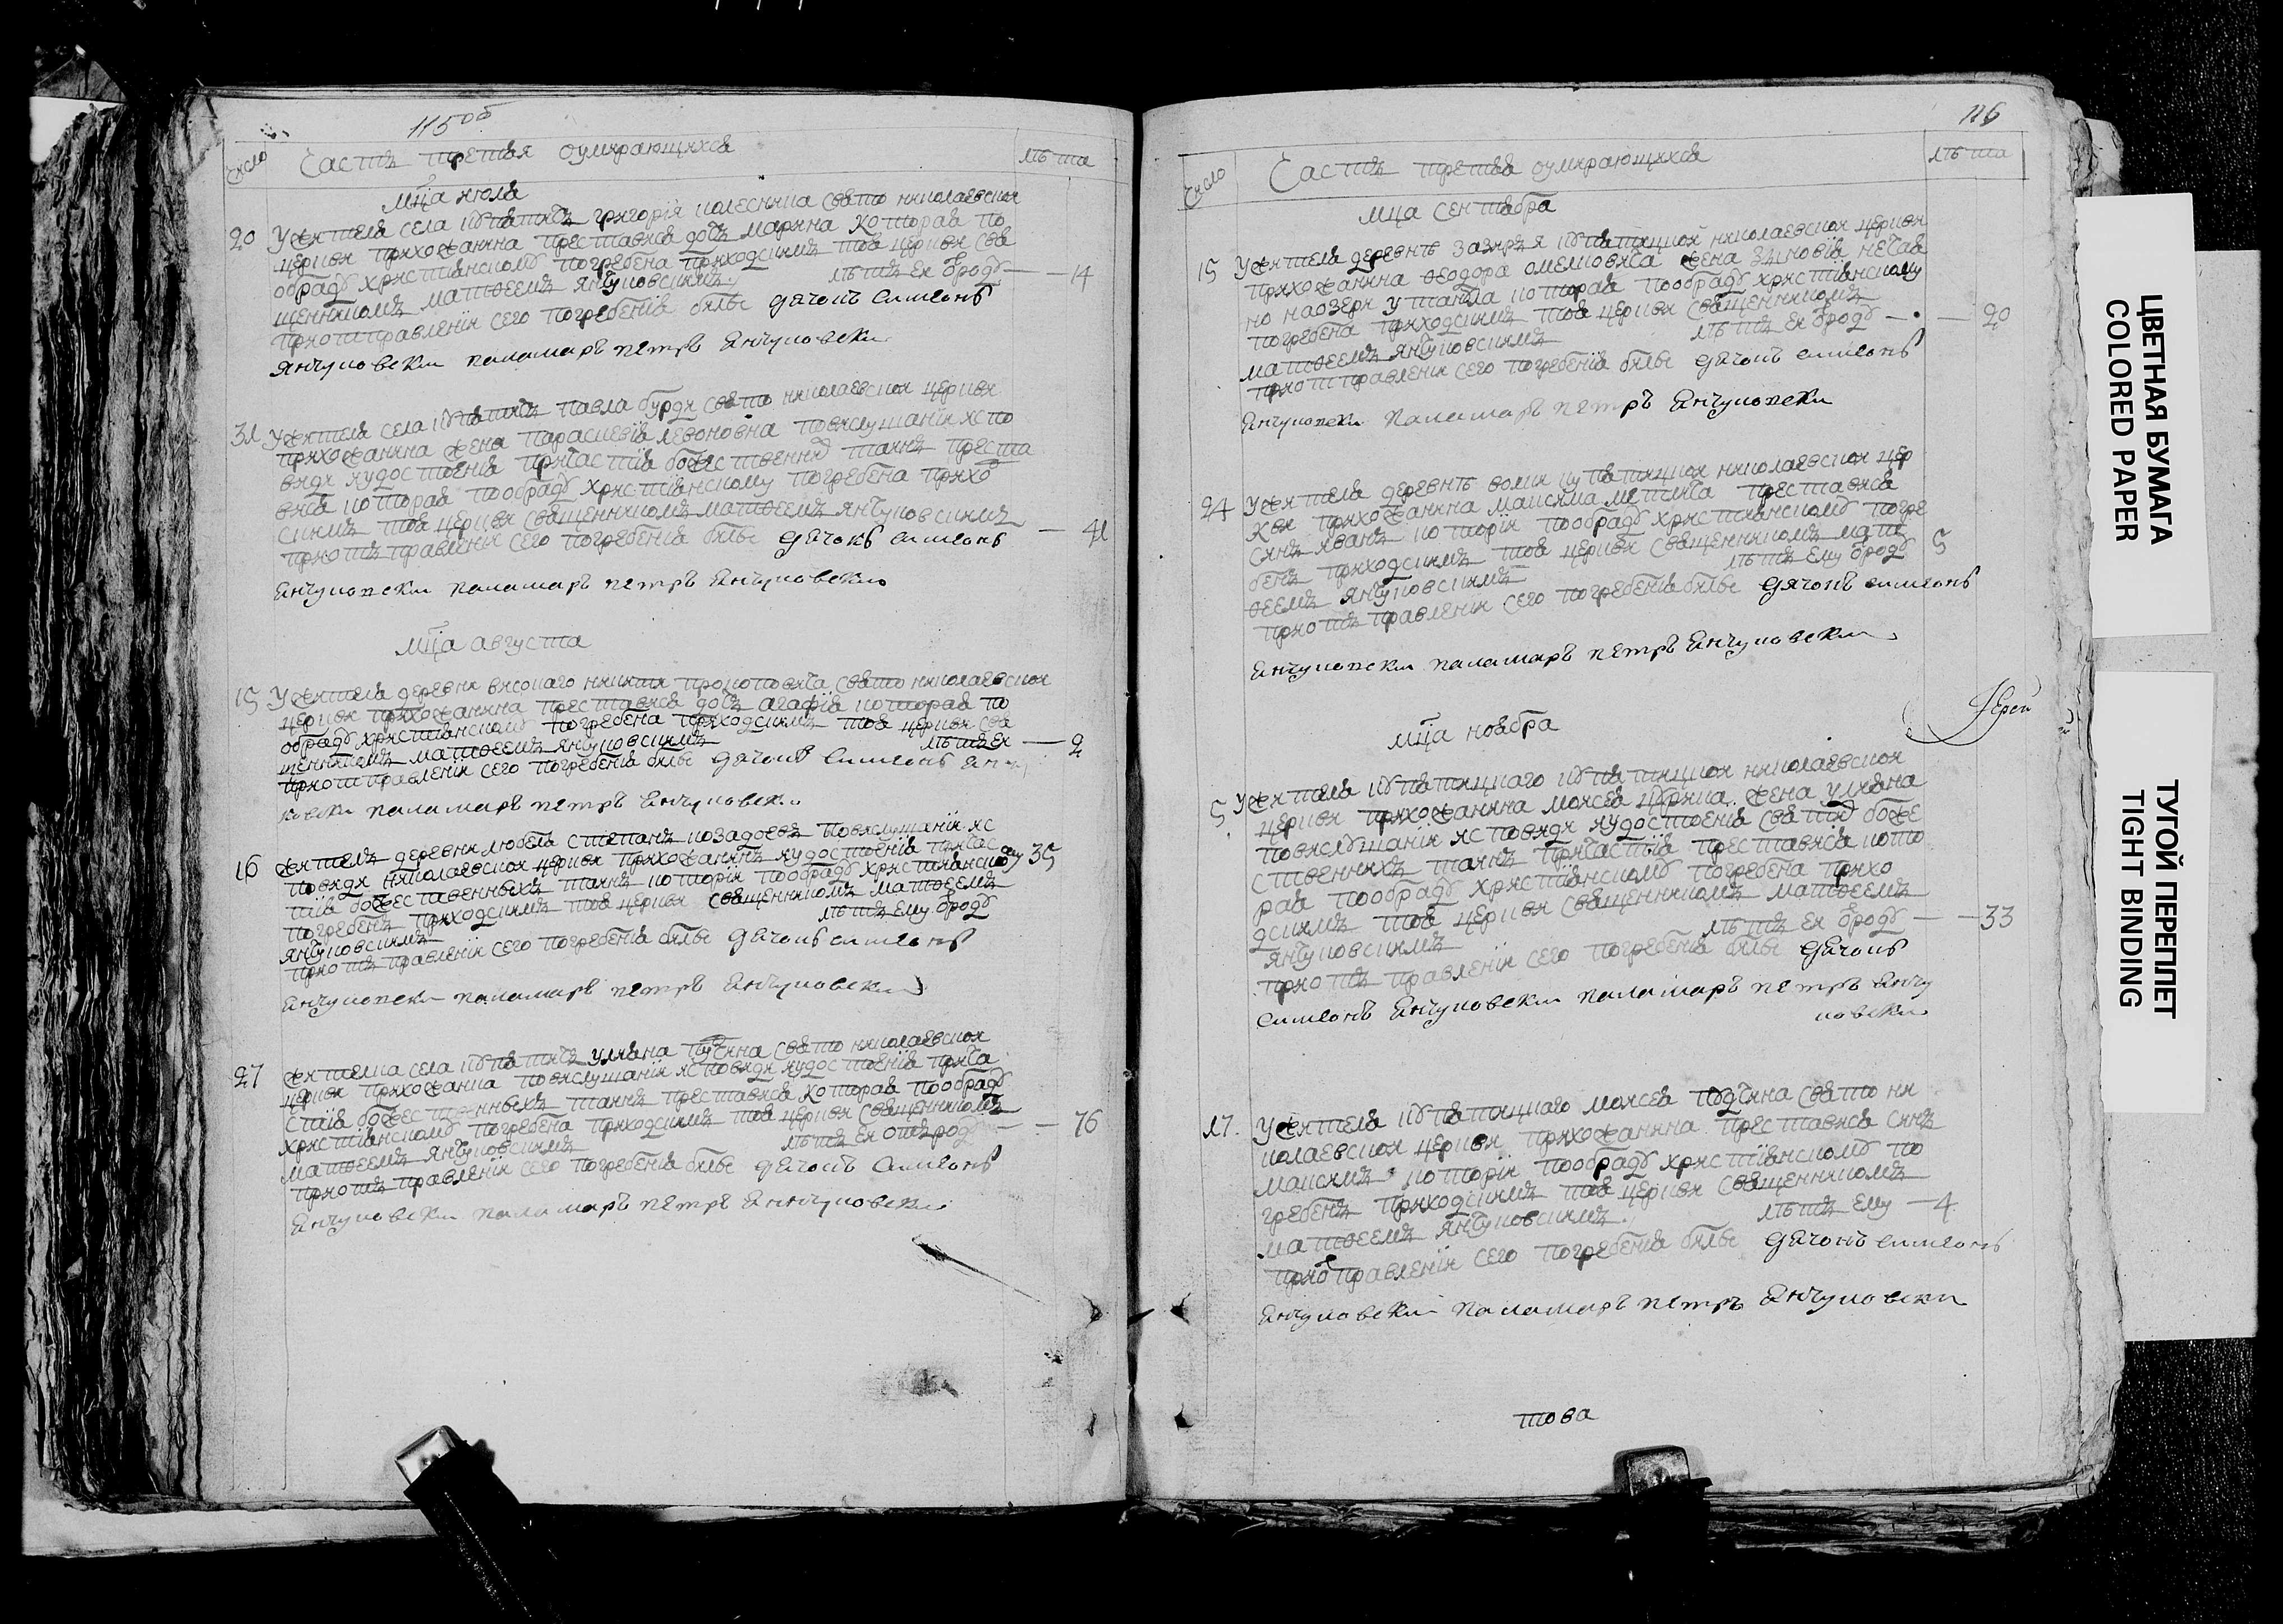 115об
Число Часть третья оумирающихся лѣта
Мца июля
20 У жителя села григорія колесника свято николаевской
церкви прихожанина преставися дочь марина которая по
обряду христіянскому погребена приходскимъ тоя церкви свя
щенникомъ матѳеемъ янчуковскимъ лѣтъ ея ѿроду — 14
при отправленіи сего погребенія были дячокъ симеонъ
янчуковски паламаръ петръ янчуковски
31 У жителя села павла бурди свято николаевской церкви
прихожанина жена параскевія левоновна повислушаніи испо
вяди иудостоенія причастія божественнихъ таинъ преста
вися которая пообряду христіянскому погребена прихо
дскимъ тоя церкви священникомъ матѳеемъ янчуковскимъ — 41
при отъправленіи сего погребенія были дячокъ симеонъ
янчуковски паламаръ петръ янчуковски
Мца августа
15 У жителя деревни високаго никити прокоповича свято николаевской
церкви прихожанина преставися дочь агафія которая по
обряду христіянскому погребена приходскимъ тоя церкви свя
щенникомъ матѳеемъ янчуковскимъ лѣтъ ея — 2
при отправленіи сего погребенія были дячокъ симеонъ янчу
ковски паламаръ петръ янчуковски
16 жителъ деревни любеля степанъ козадоевъ повислушаніи ис
повяди николаевской церкви прихожанинъ иудостоенія причас
тія божественныхъ таинъ которіи пообряду христіянскому 35
погребенъ приходскимъ тоя церкви священникомъ матѳеемъ
янчуковскимъ лѣтъ ему ѿроду
при отъправленіи сего погребенія были дячокъ симеонъ
янчуковски паламаръ петръ янчуковски
27 жителка села уляна свято николаевской
церкви прихожанка повислушаніи исповяди иудостоенія прича
стія божественныхъ таинъ преставися которая пообряду
христіянскому погребена приходскимъ тоя церкви священникомъ
матѳеемъ янчуковскимъ лѣтъ ея отъроду — 76
при отъправленіи сего погребенія были дячокъ симеонъ
янчуковски паламаръ петръ янчуковски
116
Число Часть третья оумирающихся лѣта
Мца сентября
15 У жителя деревнѣ николаевской церкви
прихожанина ѳеодора омелковича жена зѣновія нечая
но наозери утонула которая пообряду христіянскому
погребена приходскимъ тоя церкви священникомъ
матѳеемъ янчуковскимъ лѣтъ ея ѿроду — 20
при отправленіи сего погребенія были дячокъ симеонъ
янчуковски паламаръ петръ янчуковски
24 У жителя деревнѣ волки николаевской цер
кви прихожанина максима преставися
синъ иванъ которіи пообряду христіянскому погре
бенъ приходскимъ тоя церкви священникомъ мат
ѳеемъ янчуковскимъ лѣтъ ему ѿроду 5
при отъправленіи сего погребенія были дячокъ симеонъ
янчуковски паламаръ петръ янчуковски
Іерей
Мца ноября
5 У жителя николаевской
церкви прихожанина мойсея жена уляна
повислушаніи исповяди иудостоенія святихъ боже
ственнихъ таинъ причастія преставися кото
рая пообряду христіянскому погребена прихо
дскимъ тоя церкви священникомъ матѳеемъ
янчуковскимъ лѣтъ ея ѿроду — 33
при отъ правленіи сего погребенія были дячокъ
симеонъ янчуковски паламаръ петръ янчу
ковски
17. У жителя мойсея свято ни
колаевской церкви прихожанина преставися синъ
максимъ которіи пообряду христіянскому по
гребенъ приходскимъ тоя церкви священникомъ
матѳеемъ янчуковскимъ лѣтъ ему — 4
при отправленіи сего погребенія были дячокъ симеонъ
янчуковски паламаръ петръ янчуковски
това
ЦВЕТНАЯ БУМАГА
COLORED PAPER
ТУГОЙ ПЕРЕПЛЕТ
TIGHT BINDING